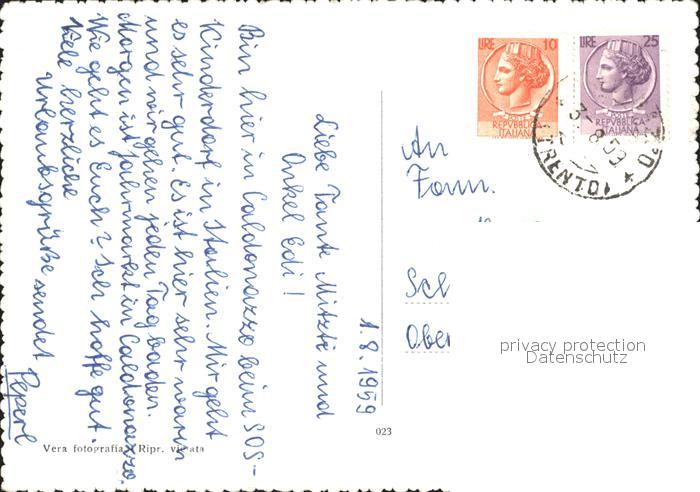 1.8.1959
Liebe Tante Mitzti und
Onkel Edi!
Bin hier in Caldonazzo beim SOS-
Kinderdorf in Italien. Mir geht
es sehr gut. Es ist hier sehr warm
und wir gehen jeden Tag baden.
Morgen ist Jahrmarkt in Caldonazzo.
Wie geht es Euch? Ich hoffe gut.
Viele herzliche
Urlaubsgrüße sendet
Peperl
Vera fotografia Ripr. vietata
023
LIRE 10
POSTE
REPVBBLICA
ITALIANA
LIRE 25
POSTE
REPVBBLICA
ITALIANA
(TRENTO)
An
Fam.
Sch
Ober
privacy protection
Datenschutz